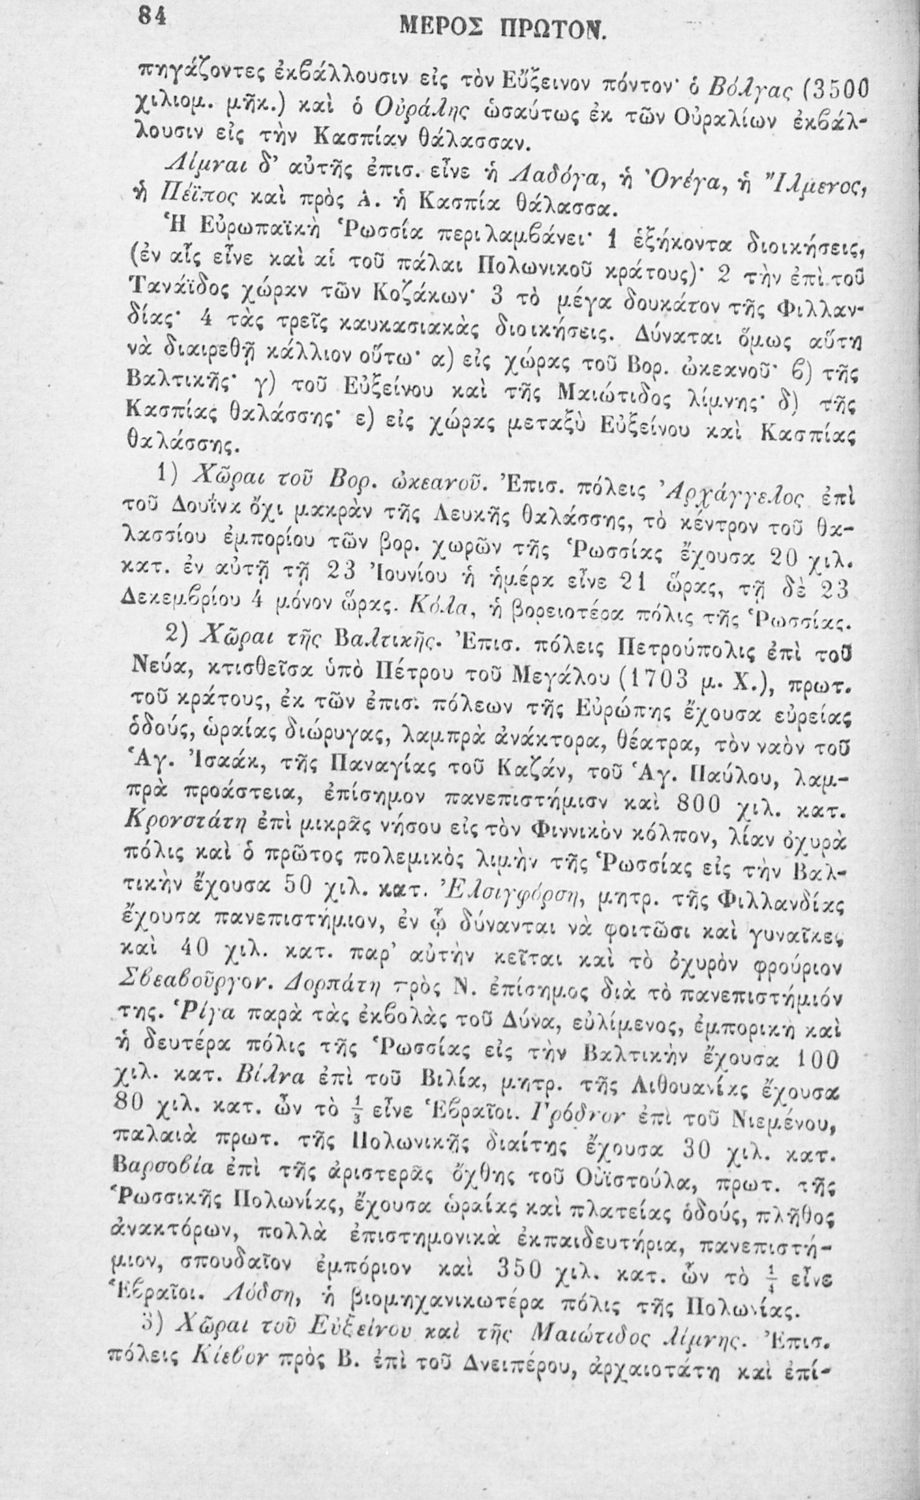 84
ΜΕΡΟΣ ΠΡΩΤΟΝ.
πηγάζοντες ἐκβάλλουσιν εἰς τὸν Εὔξεινον πόντον· ὁ Βόλγας (3500
χιλιομ. μῆκ.) καὶ ὁ Οὐράλης ὡσαύτως ἐκ τῶν Οὐραλίων ἐκβάλ-
λουσιν εἰς τὴν Κασπίαν θάλασσαν.
Λίμναι δ' αὐτῆς ἐπισ. εἶνε ἡ Λαδόγα, ἡ Ὀνέγα, ἡ Ἴλμενος,
ἡ Πέϊπος καὶ πρὸς Ἀ. ἡ Κασπία θάλασσα.
Ἡ Εὐρωπαϊκὴ Ῥωσσία περιλαμβάνει· 1 ἑξήκοντα διοικήσεις,
(ἐν αἷς εἶνε καὶ αἱ τοῦ πάλαι Πολωνικοῦ κράτους)· 2 τὴν ἐπὶ τοῦ
Τανάϊδος χώραν τῶν Κοζάκων· 3 τὸ μέγα δουκάτον τῆς Φιλλαν-
δίας· 4 τὰς τρεῖς καυκασιακὰς διοικήσεις. Δύναται ὅμως αὕτη
νὰ διαιρεθῇ κάλλιον οὕτω· α) εἰς χώρας τοῦ Βορ. ὠκεανοῦ· β) τῆς
Βαλτικῆς· γ) τοῦ Εὐξείνου καὶ τῆς Μαιώτιδος λίμνης· δ) τῆς
Κασπίας θαλάσσης· ε) εἰς χώρας μεταξὺ Εὐξείνου καὶ Κασπίας
θαλάσσης.
1) Χῶραι τοῦ Βορ. ὠκεανοῦ. Ἐπισ. πόλεις Ἀρχάγγελος ἐπὶ
τοῦ Δουΐνα ὄχι μακρὰν τῆς Λευκῆς θαλάσσης, τὸ κέντρον τοῦ θα-
λασσίου ἐμπορίου τῶν βορ. χωρῶν τῆς Ῥωσσίας ἔχουσα 20 χιλ.
κατ. ἐν αὐτῇ τῇ 23 Ἰουνίου ἡ ἡμέρα εἶνε 21 ὥρας, τῇ δὲ 23
Δεκεμβρίου 4 μόνον ὥρας. Κόλα, ἡ βορειοτέρα πόλις τῆς Ῥωσσίας.
2) Χῶραι τῆς Βαλτικῆς. Ἐπισ. πόλεις Πετρούπολις ἐπὶ τοῦ
Νεύα, κτισθεῖσα ὑπὸ Πέτρου τοῦ Μεγάλου (1703 μ. Χ.), πρωτ.
τοῦ κράτους, ἐκ τῶν ἐπισ. πόλεων τῆς Εὐρώπης ἔχουσα εὐρείας
ὁδούς, ὡραίας διώρυγας, λαμπρὰ ἀνάκτορα, θέατρα, τὸν ναὸν τοῦ
Ἁγ. Ἰσαάκ, τῆς Παναγίας τοῦ Καζάν, τοῦ Ἁγ. Παύλου, λαμ-
πρὰ προάστεια, ἐπίσημον πανεπιστήμιον καὶ 800 χιλ. κατ.
Κρονστάτη ἐπὶ μικρᾶς νήσου εἰς τὸν Φιννικὸν κόλπον, λίαν ὀχυρὰ
πόλις καὶ ὁ πρῶτος πολεμικὸς λιμὴν τῆς Ῥωσσίας εἰς τὴν Βαλ-
τικὴν ἔχουσα 50 χιλ. κατ. Ἐλσιγφόρση, μητρ. τῆς Φιλλανδίας
ἔχουσα πανεπιστήμιον, ἐν ᾧ δύνανται νὰ φοιτῶσι καὶ γυναῖκες
καὶ 40 χιλ. κατ. παρ' αὐτὴν κεῖται καὶ τὸ ὀχυρὸν φρούριον
Σβεαβοῦργον. Δορπάτη πρὸς Ν. ἐπίσημος διὰ τὸ πανεπιστήμιόν
της. Ῥίγα παρὰ τὰς ἐκβολὰς τοῦ Δύνα, εὐλίμενος, ἐμπορικὴ καὶ
ἡ δευτέρα πόλις τῆς Ῥωσσίας εἰς τὴν Βαλτικὴν ἔχουσα 100
χιλ. κατ. Βίλνα ἐπὶ τοῦ Βιλία, μητρ. τῆς Λιθουανίας ἔχουσα
80 χιλ. κατ. ὧν τὸ 1/3 εἶνε Ἑβραῖοι. Γρόδνον ἐπὶ τοῦ Νιεμένου,
παλαιὰ πρωτ. τῆς Πολωνικῆς διαίτης ἔχουσα 30 χιλ. κατ.
Βαρσοβία ἐπὶ τῆς ἀριστερᾶς ὄχθης τοῦ Οὐϊστούλα, πρωτ. τῆς
Ῥωσσικῆς Πολωνίας, ἔχουσα ὡραίας καὶ πλατείας ὁδούς, πλῆθος
ἀνακτόρων, πολλὰ ἐπιστημονικὰ ἐκπαιδευτήρια, πανεπιστή-
μιον, σπουδαῖον ἐμπόριον καὶ 350 χιλ. κατ. ὧν τὸ 1/4 εἶνε
Ἑβραῖοι. Λόδση, ἡ βιομηχανικωτέρα πόλις τῆς Πολωνίας.
3) Χῶραι τοῦ Εὐξείνου καὶ τῆς Μαιώτιδος λίμνης. Ἐπισ.
πόλεις Κίεβον πρὸς Β. ἐπὶ τοῦ Δνειπέρου, ἀρχαιοτάτη καὶ ἐπί-